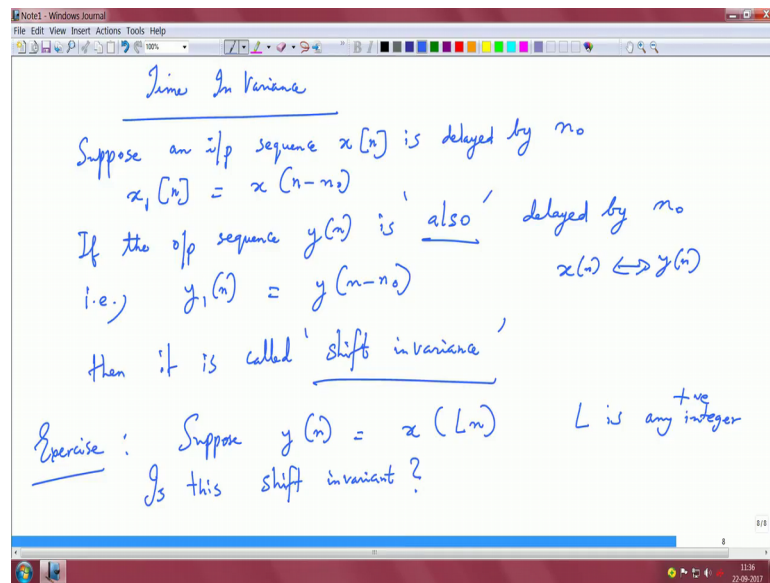 Note1 - Windows Journal
File Edit View Insert Actions Tools Help
100%
Time In Variance
Suppose an i/p sequence x[n] is delayed by n₀
x₁[n] = x(n-n₀)
If the o/p sequence y(n) is 'also' delayed by n₀
i.e., y₁(n) = y(n-n₀) x(n) ⇔ y(n)
then it is called 'shift invariance'
Exercise : Suppose y(n) = x(Ln) L is any +ve integer
Is this shift invariant ?
8/8
8
11:36
22-09-2017